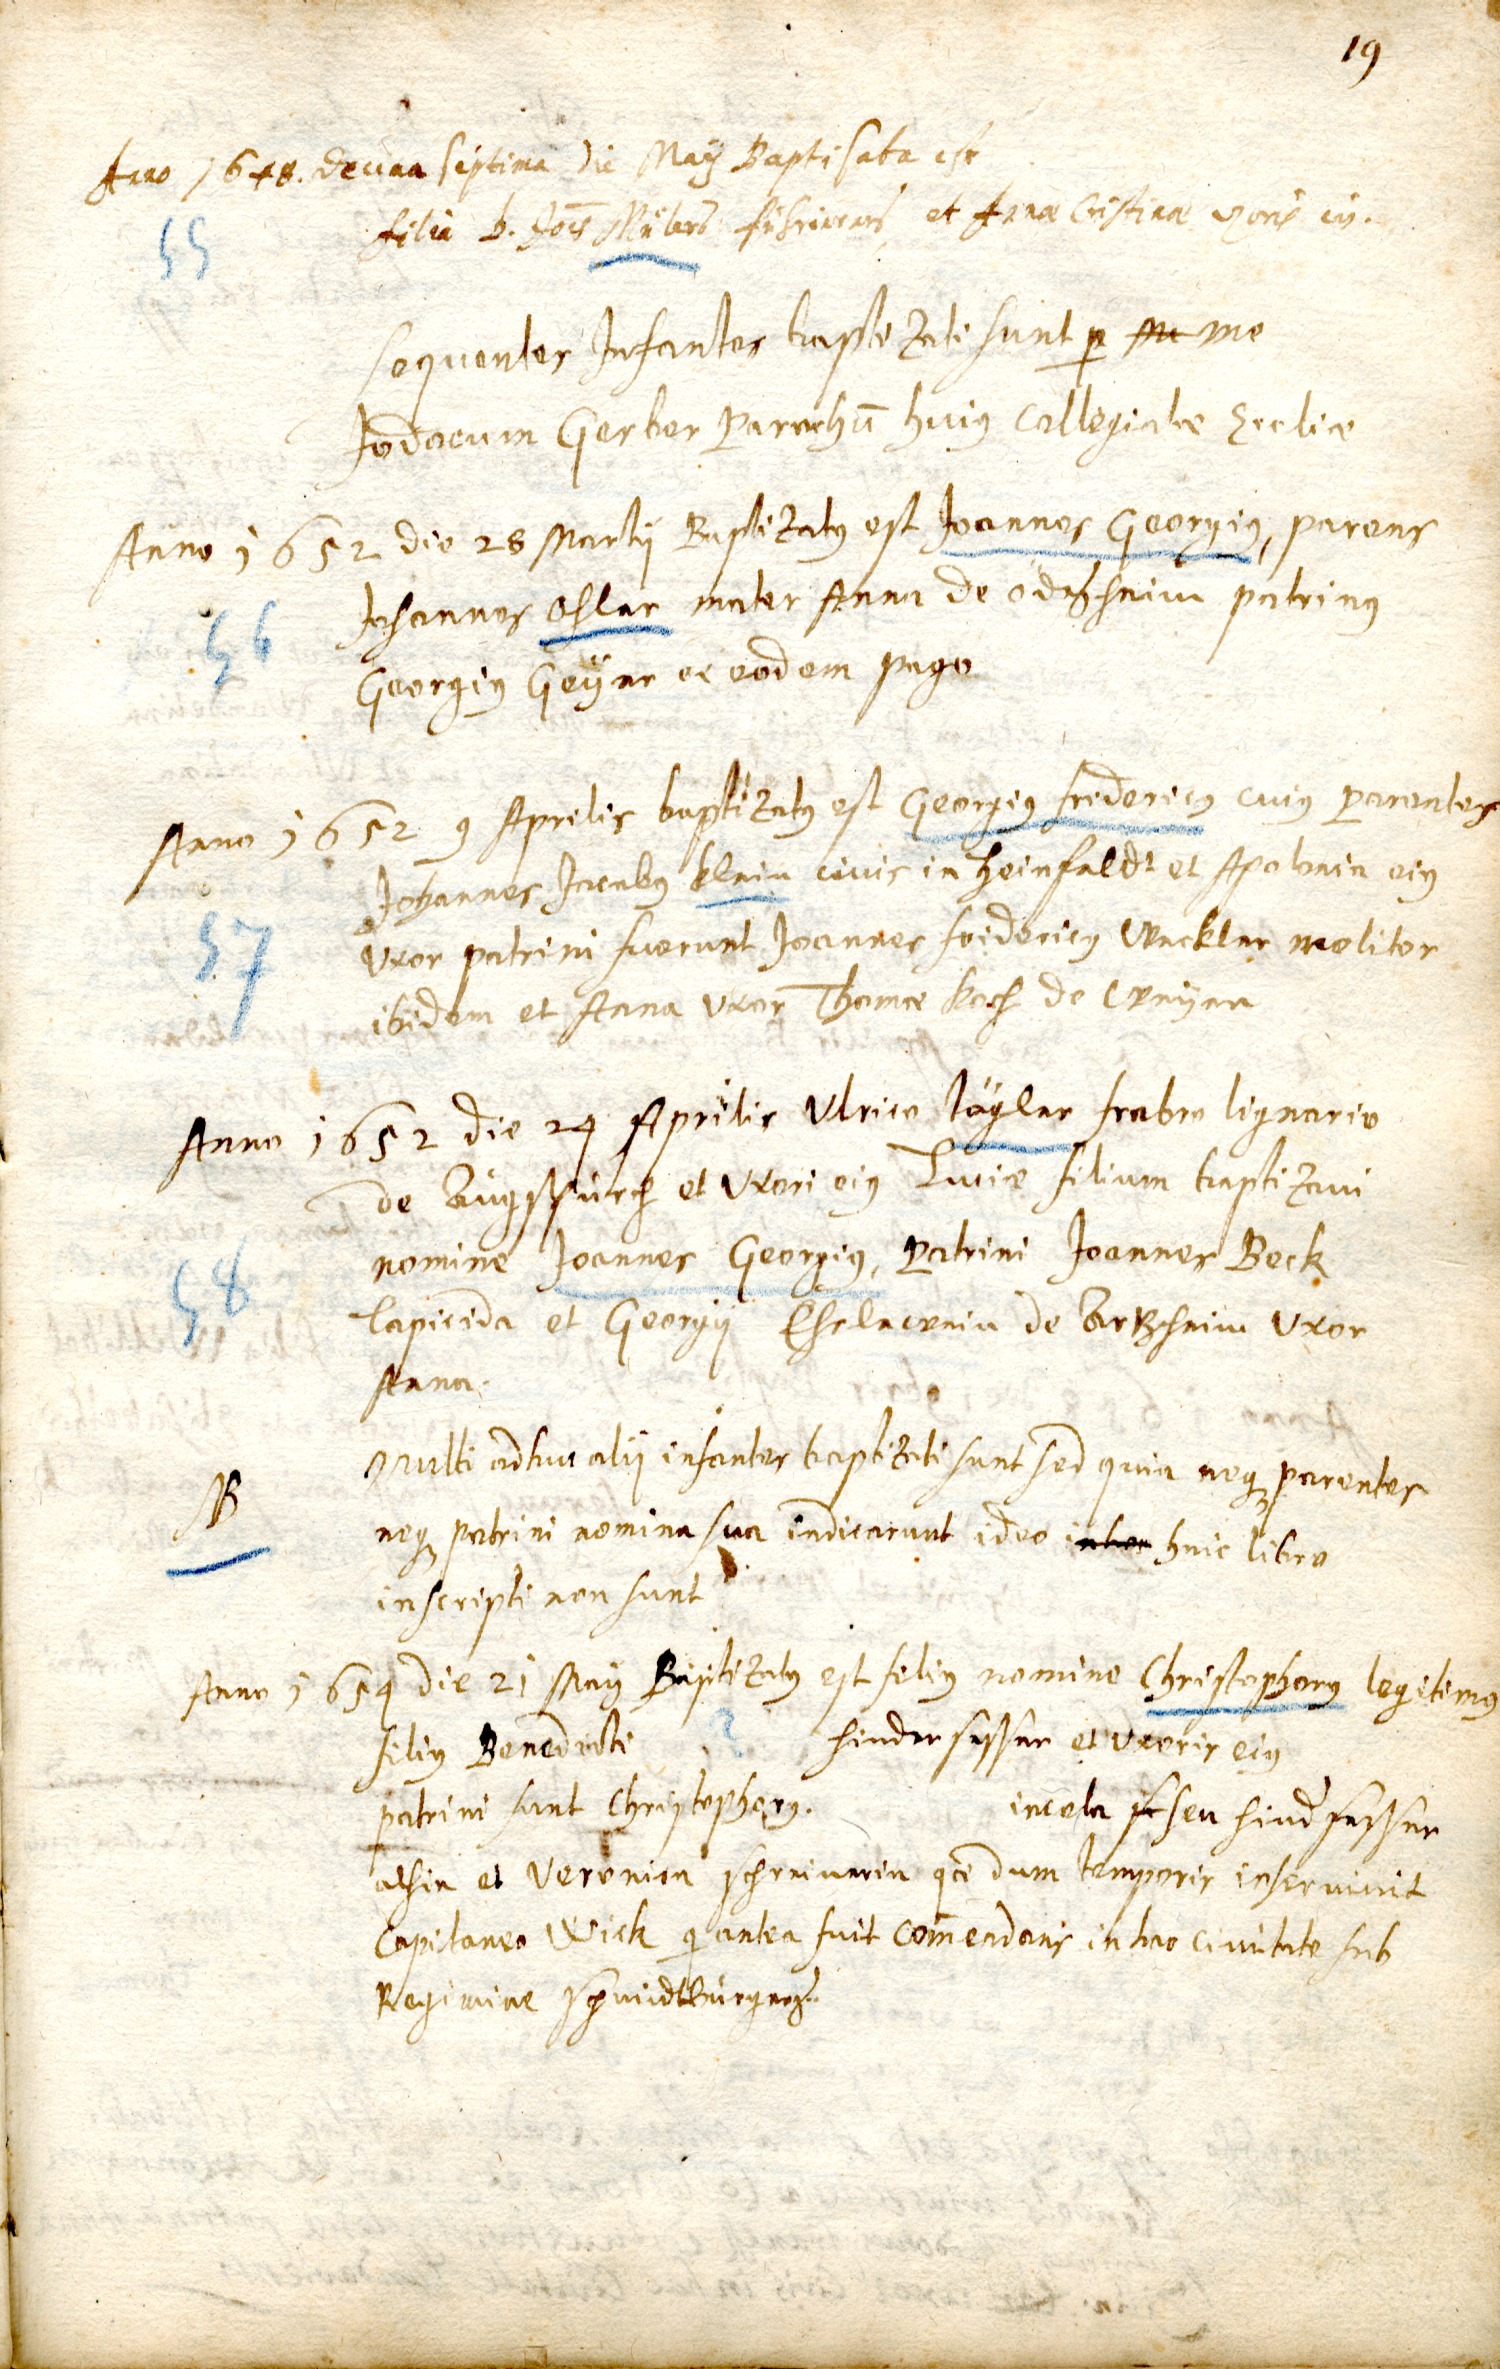 19
Anno 1648. decima septima die Maÿ Baptisata est
filia b. Jois Mülers et Annæ Cristinæ uxoris eiꝰ.
55
sequentes Infantes baptizati sunt p me
Jodocum Gerber Parochū huiꝰ Collegiatæ Eccliæ
Anno 1652 die 28 Martÿ Baptizatꝰ est Joannes Georgiꝰ, parens
Johannes Ohler mater Anna de odeßheim patrinꝰ
56
Georgiꝰ Geÿer ex eodem pago
Anno 1652 9 Aprilis baptizatꝰ est Georgiꝰ fridericꝰ cuiꝰ Parentes
Johannes Jacobꝰ klein civis in heinfeldt et Apolonia eiꝰ
57
Vxor patrini fuerunt Joannes fridericꝰ Weckler molitor
ibidem et Anna Vxor Thomæ koch de Weÿer
Anno 1652 die 24 Aprilis Vlrico Täÿler frabro lignario
de Augspurch et Vxori eiꝰ Luciæ filium baptizavi
58
nomine Joannes Georgiꝰ, Patrini Joannes Beck
lapicida et Georgÿ de Artzheim Vxor
Anna.
NB
Multi adhuc alÿ infantes baptizati sunt sed quia neqꝫ parentes
neqꝫ patrini nomina sua indicarunt ideo huic libro
inscripti non sunt
Anno 1654 die 21 Maÿ Baptizatꝰ est filiꝰ nomine Christophorꝰ legitimꝰ
filiꝰ Benedicti ? hindersesser et Vxoris eiꝰ
patrini sunt Christophorꝰ. incola seu hindsesser
alhie et Veronica schreinerin dum temporis inservivit
Capitaneo Wick q antea fuit Com̄endans in hac civitate sub
Regimine schmidtburgers.